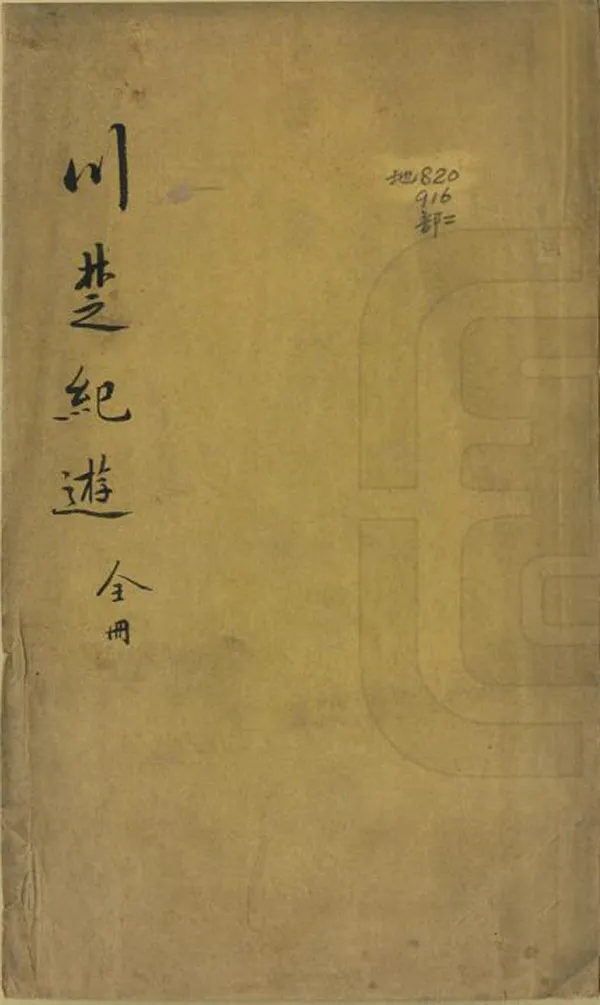 地820
916
部二
川楚紀遊
全冊